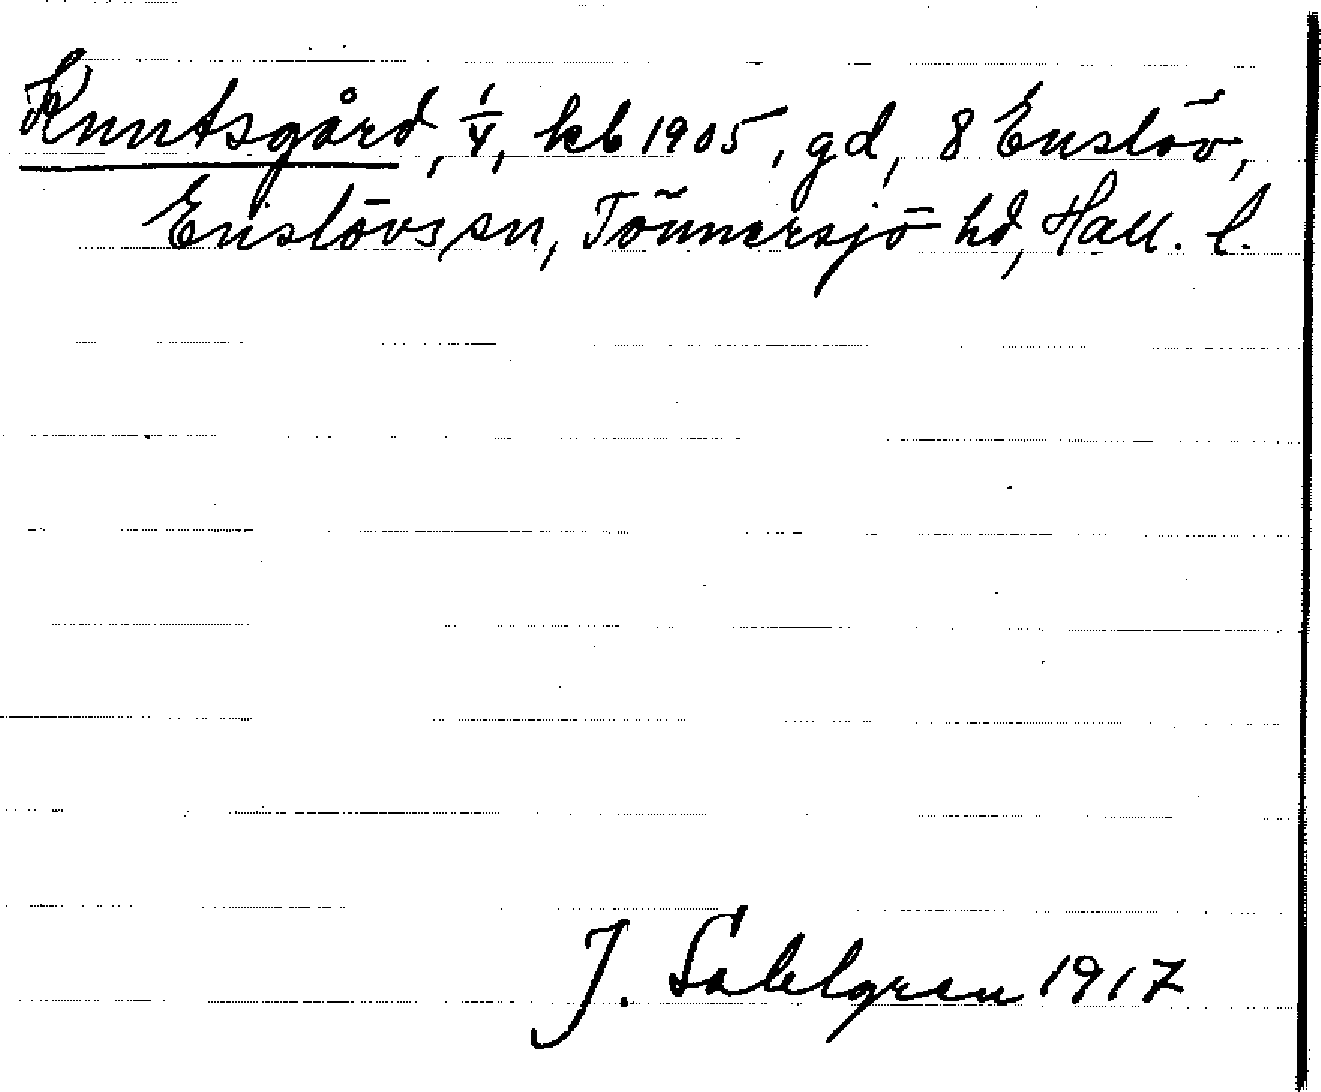 Knutsgård, 1/4, kb 1905, gd, 8 Enslöv,
Enslövs sn, Tönnersjö hd, Hall. l.
J. Sahlgren 1917